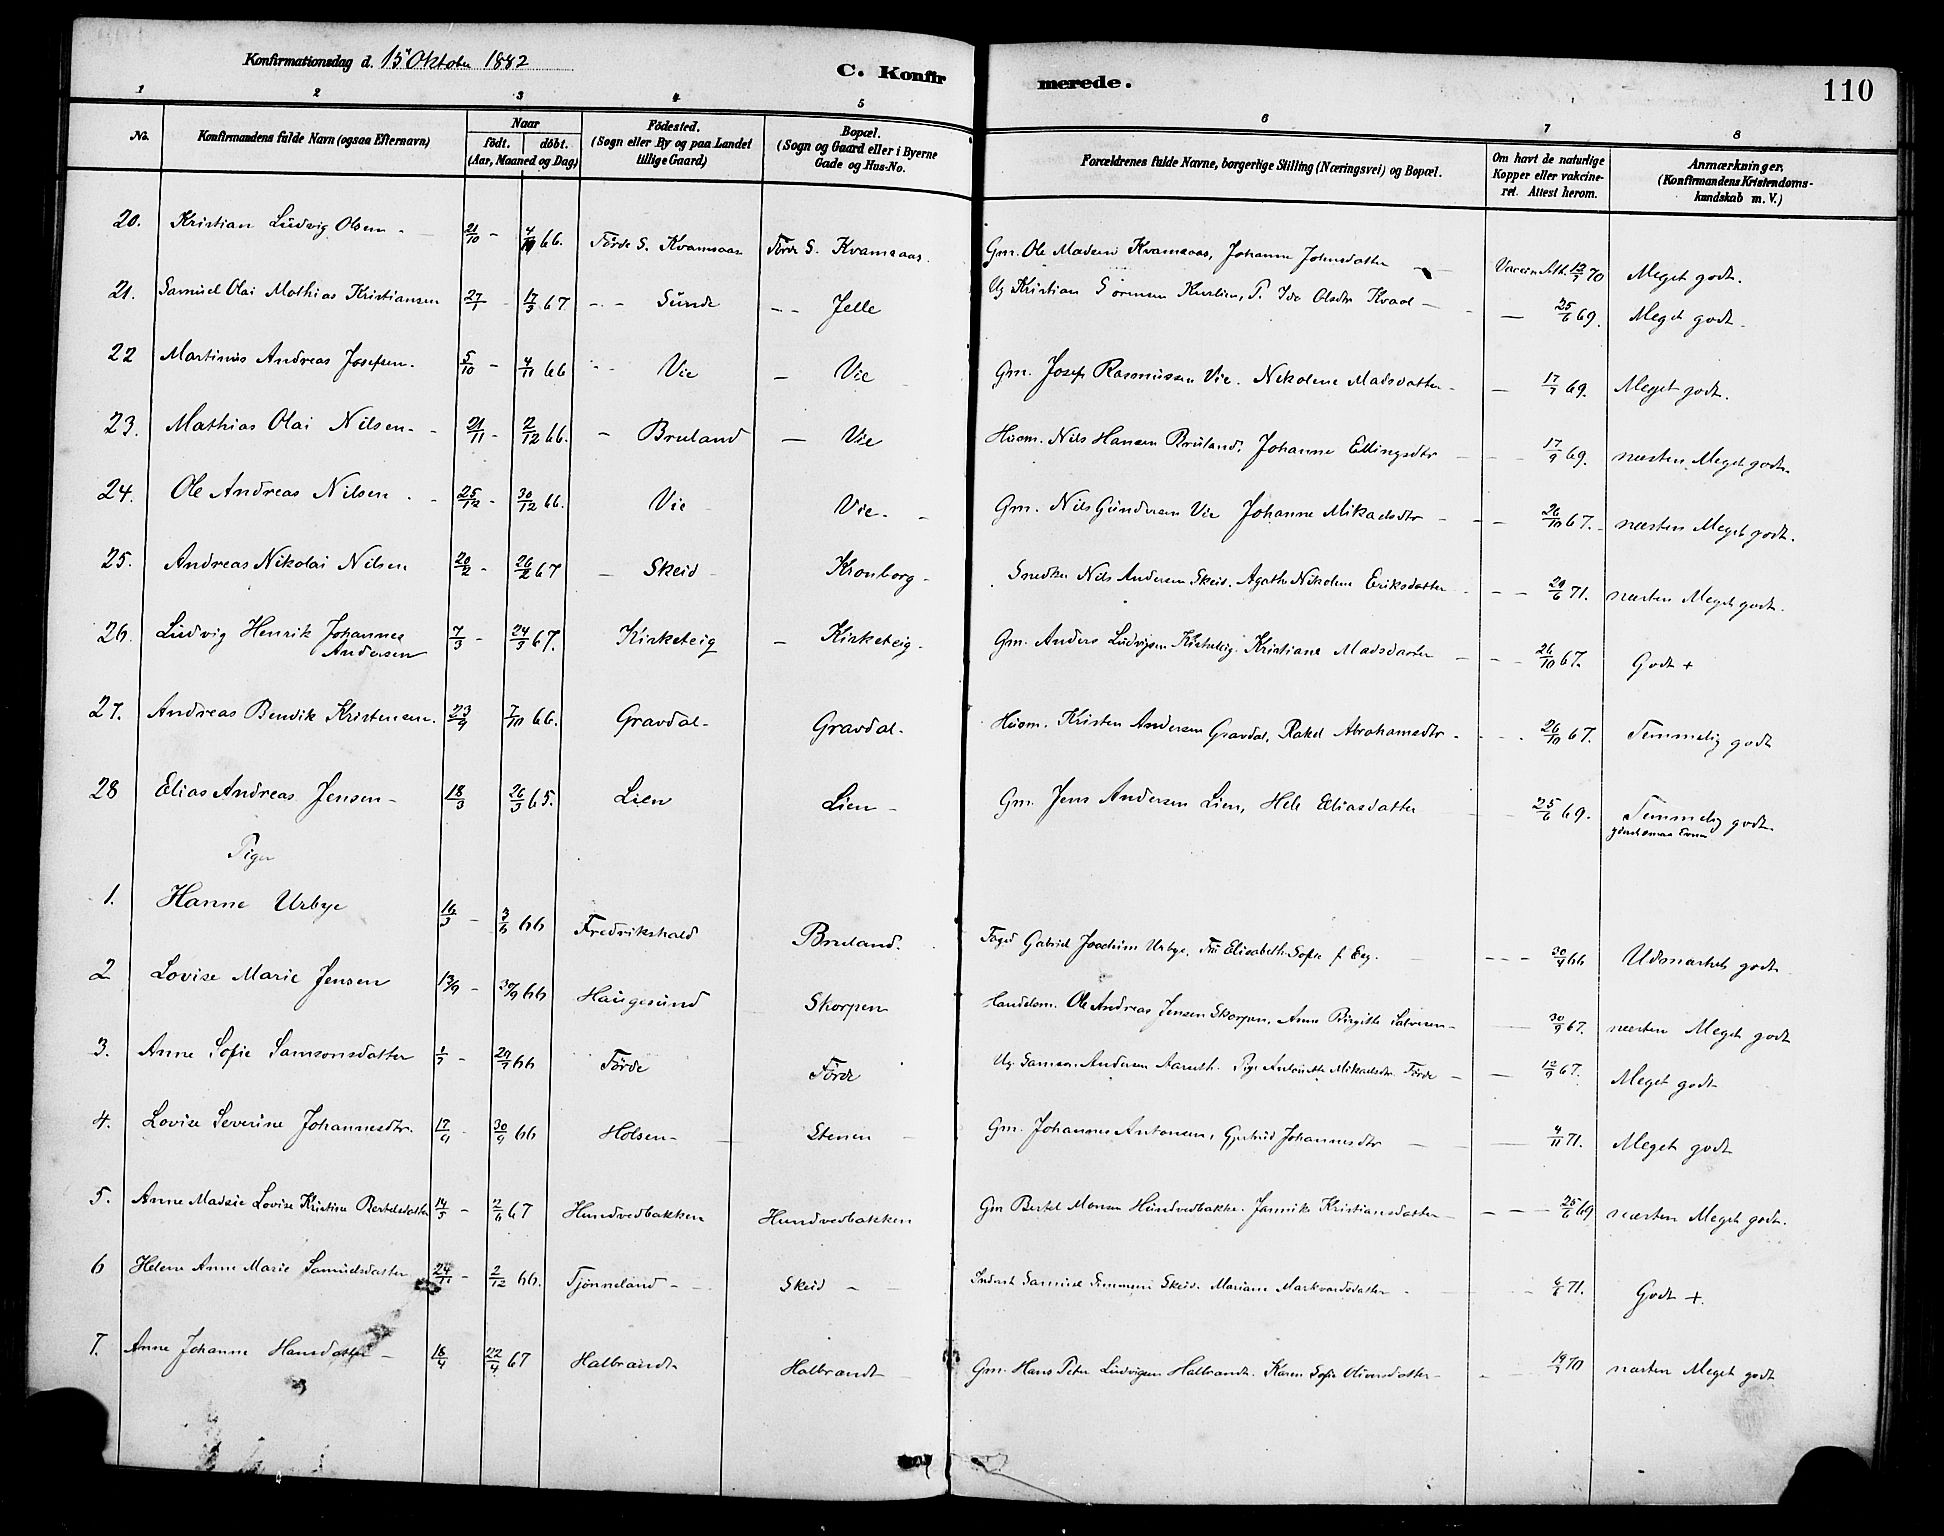 Konfirmationsdag d. 15 Oktober 1882
C. Konfirmerede.
110
1 2 3 4 5 6 7 8
No. Konfirmandens fulde Navn (ogsaa Efternavn) Naar födt. döbt. (Aar, Maaned og Dag) Födested. (Sogn eller By og paa Landet tillige Gaard) Bopæl. (Sogn og Gaard eller i Byerne Gade og Hus-No. Forældrenes fulde Navne, borgerlige Stilling (Næringsvei) og Bopæl. Om havt de naturlige Kopper eller vakcineret. Attest herom. Anmærkninger, (Konfirmandens Kristendomskundskab m. V.)
20. Kristian Ludvig Olsen - 21/10 - 66. Förde S. Kvamsaas Förde S. Kvamsaas. Gm. Ole Madsen Kvamsaas, Johanne Johnsdatter 70 Meget godt.
21. Samuel Olai Mathias Kristiansen 27/1 - 17/3 67 - - Sunde - - Jelle Ug Kristian Sörensen P. Ida Olsdtr Kvaal - - 25/6 69. Meget godt.
22 Martinus Andreas Josefsen. 5/10 - 4/11 66 - - Vie - Vie Gm. Josef Rasmussen Vie. Nikoline Madsdatter - - 17/9 69. Meget godt.
23. Mathias Olai Nilsen - - 21/11 - 2/12 66. - Bruland - Vie Husm. Nils Hansen Bruland. Johanne Ellingsdtr - - 17/9 69. næsten Meget godt.
24. Ole Andreas Nilsen. - 25/12 - 30/12 66. Vie Vie - Gm. Nils Gundersen Vie Johanne Mikaelsdtr - - - 26/10 67. - næsten Meget godt.
25. Andreas Nikolai Nilsen 20/2 - 26/2 67 - Skeid - Kronborg - Snedker Nils Andersen Skeid. Agathe Nikoline Eriksdatter - - 29/6 71. næsten Meget godt.
26. Ludvig Henrik Johannes Andersen 7/3 - 24/3 67. Kirketeig - Kirketeig. Gm. Anders Ludvigsen Kirketeig. Kristiane Madsdatter - - - 26/10 67. Godt +
27. Andreas Bendik Kristensen. 23/9 7/10 66. Gravdal - Gravdal. Husm. Kristen Andersen Gravdal, Rakel Abrahamsdtr - - - 26/10 67. Temmelig godt
28 Elias Andreas Jensen - 18/3 26/3 65. Lien Lien - Gm. Jens Andersen Lien, Hele Eliasdatter - 25/6 69. Temmelig godt.
Piger
1. Hanne Urbye 16/3 - 3/6 66 Fredrikshald Bruland. Foged Gabriel Joachim Urbye, Fru Elisabeth Sofie f. - - - 30/4 66 Udmærket godt
2 Lovise Marie Jensen 13/9 - 30/9 66 Haugesund Skorpen Handelsm. Ole Andreas Jensen Skorpen, Anne Birgitte Salvesen - - 30/9 67. næsten Meget godt
3. Anne Sofie Samsonsdatter - 66 Förde Förde Ug. Samson Andersen Pige Antonette Mikaelsdtr. Förde - - 12/9 67. Meget godt
4. Lovise Severine Johannesdtr. 17/9 30/9 66 Holsen - Stenen Gm. Johannes Antonsen, Gjertrud Johannesdtr - - 4/11 71. Meget godt
5. Anne Madsie Lovise Kristine Bertelsdatter 14/5 - 2/6 67 Hundvedbakken Hundvedbakken Gm Bertel Monsen Hundvedbakke. Jannike Kristiansdatter - - - 25/6 69 næsten Meget godt.
6 Helene Anne Marie Samuelsdatter 24/11 - 2/12 66. Tjönneland - Skeid - Inderst Samuel Simmensen Skeid. Mariane Markvardsdatter - - 71. Godt +.
7. Anne Johanne Hansdatter - 18/4 22/4 67 Halbrandt Halbrandt - Gm. Hans Peter Ludvigsen Halbrandt. Karen Sofie Oliversdatter - - 70 næsten Meget godt